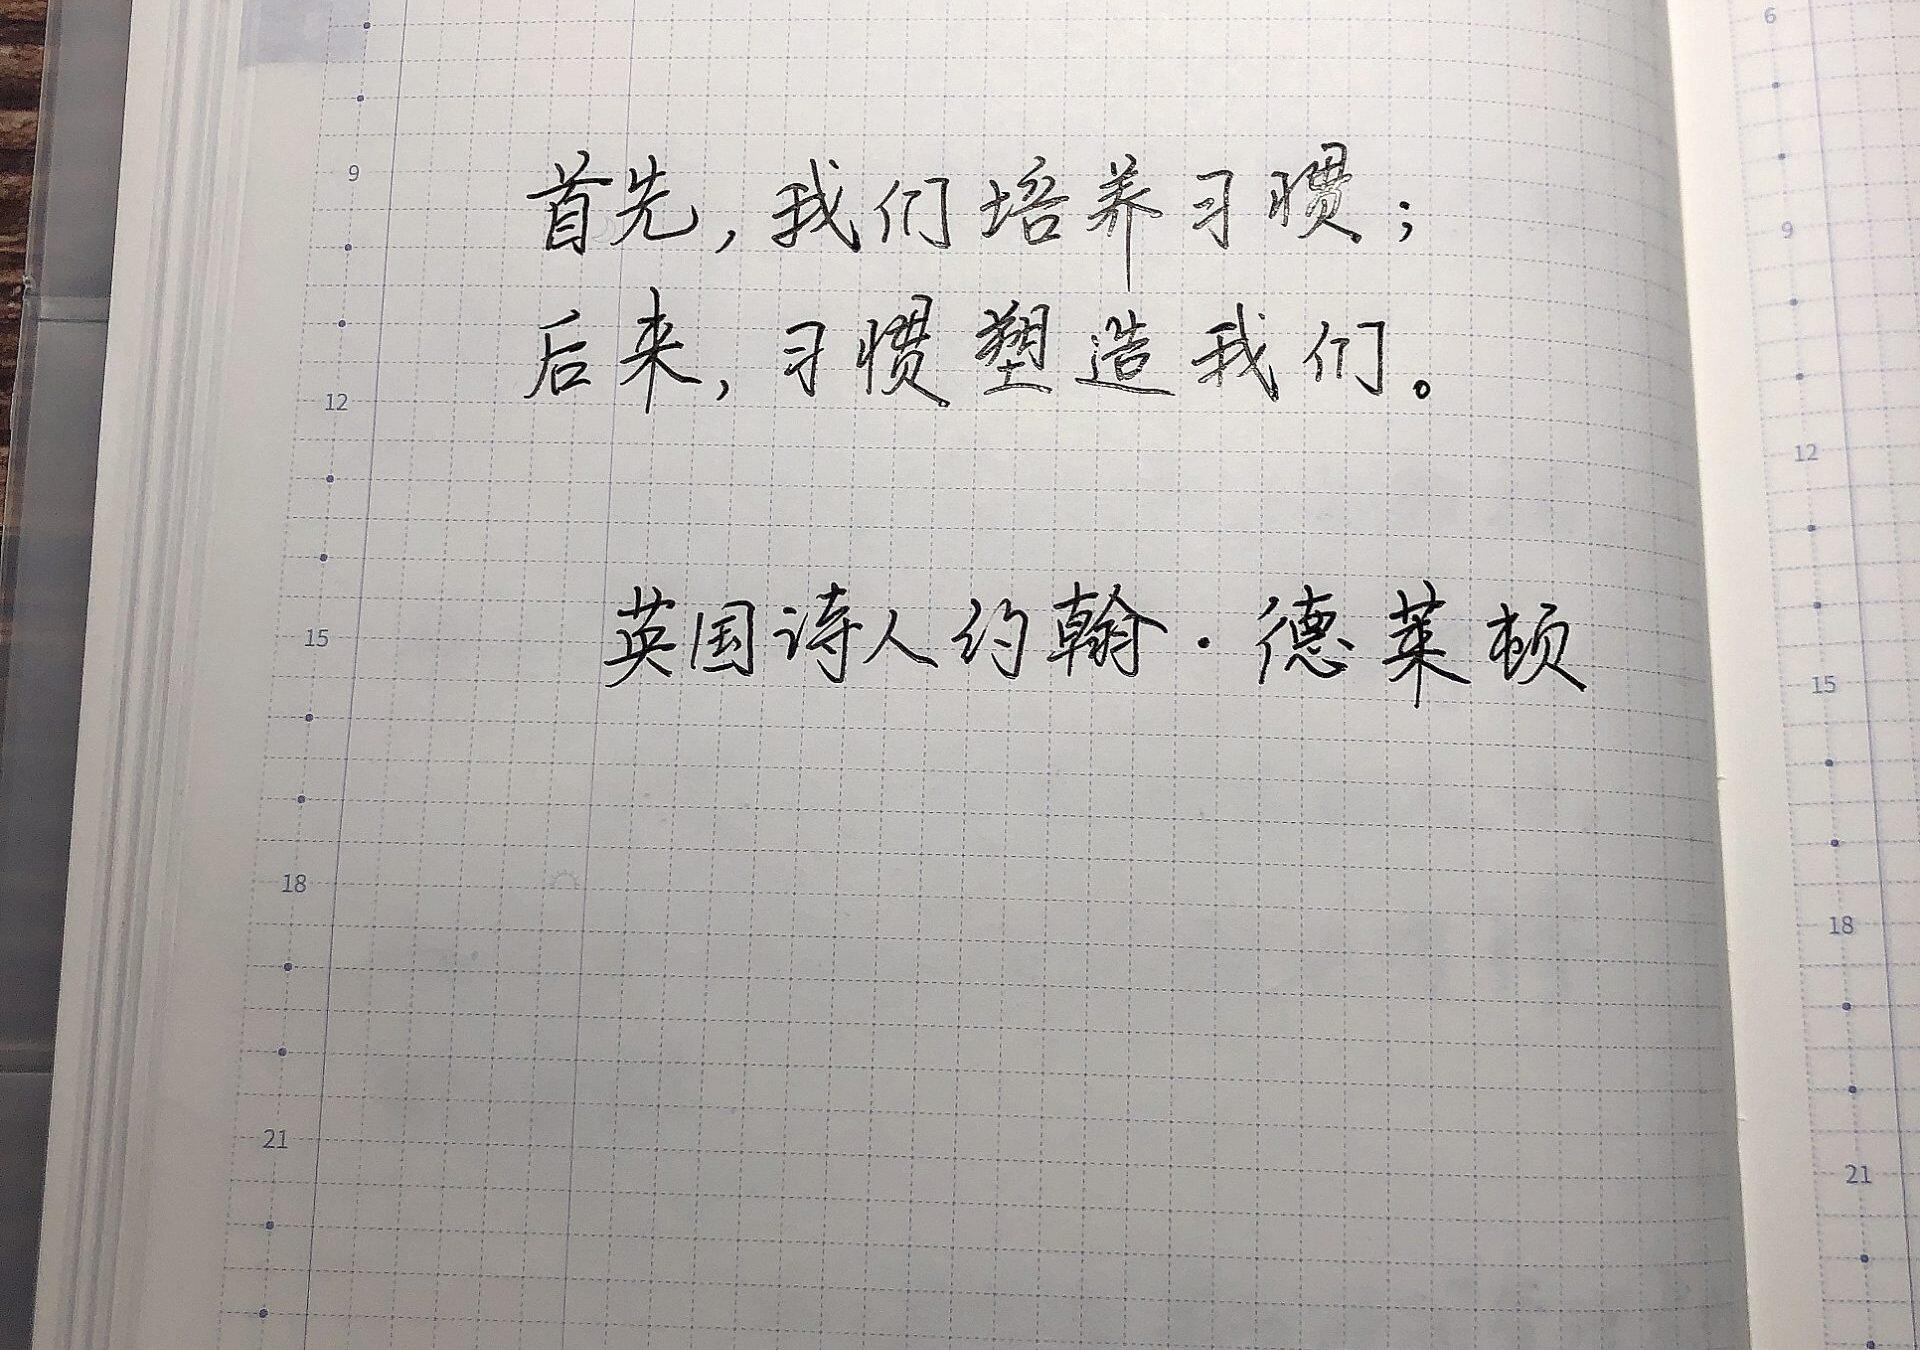 首先，我们培养习惯；
后来，习惯塑造我们。
英国诗人约翰·德莱顿
9
12
15
18
21
6
9
12
15
18
21